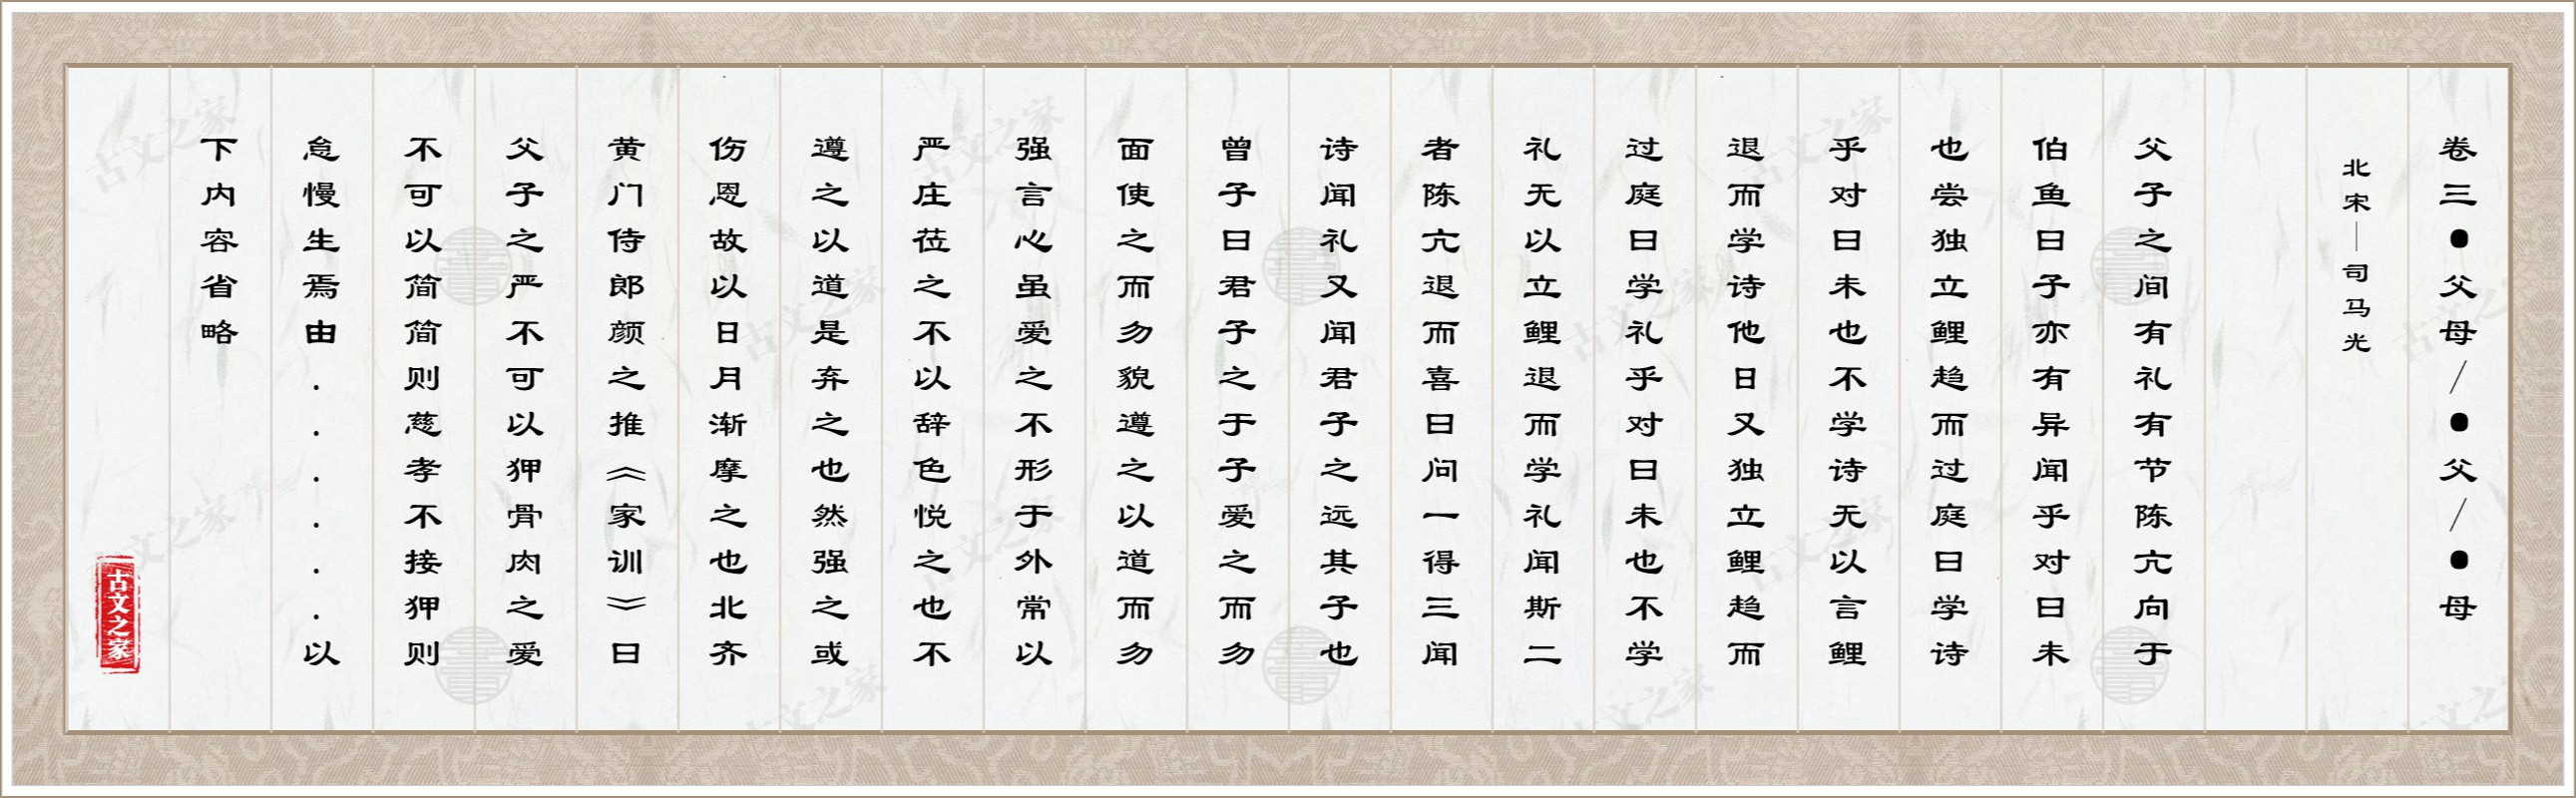 卷三●父母/●父/●母
北宋—司马光
父子之间有礼有节陈亢向于
伯鱼曰子亦有异闻乎对曰未
也尝独立鲤趋而过庭曰学诗
乎对曰未也不学诗无以言鲤
退而学诗他日又独立鲤趋而
过庭曰学礼乎对曰未也不学
礼无以立鲤退而学礼闻斯二
者陈亢退而喜曰问一得三闻
诗闻礼又闻君子之远其子也
曾子曰君子之于子爱之而勿
面使之而勿貌遵之以道而勿
强言心虽爱之不形于外常以
严庄莅之不以辞色悦之也不
遵之以道是弃之也然强之或
伤恩故以日月渐摩之也北齐
黄门侍郎颜之推《家训》曰
父子之严不可以狎骨肉之爱
不可以简简则慈孝不接狎则
怠慢生焉由......以
下内容省略
古文之家